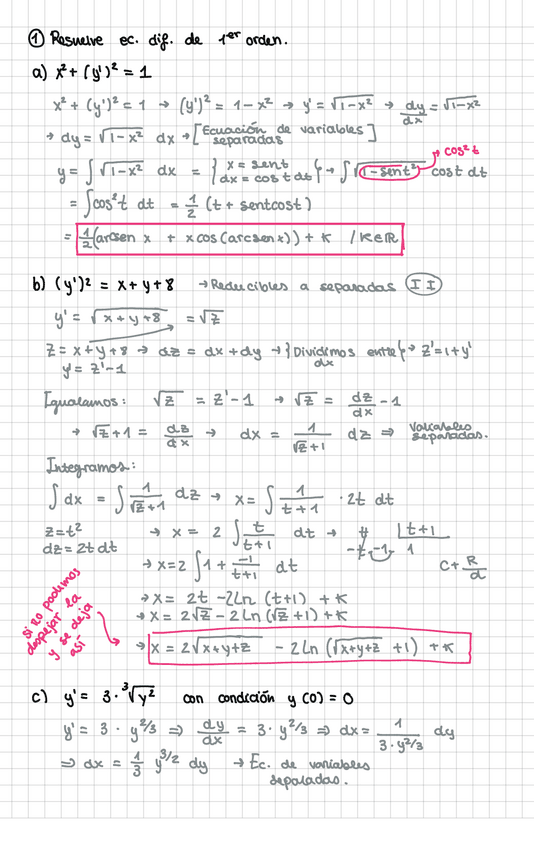 ① Resuelve ec. dif. de 1er orden.
a) x² + (y')² = 1
x² + (y')² = 1 → (y')² = 1 - x² → y' = √(1-x²) → dy/dx = √(1-x²)
→ dy = √(1-x²) dx → [Ecuación de variables separadas]
cos²t
y = ∫ √(1-x²) dx = { x = sent dx = cos t dt } → ∫ √(1-sent²) cost dt
= ∫cos²t dt = 1/2 (t + sentcost)
= 1/2 (arcsen x + x cos(arcsenx)) + K / K∈ℝ
b) (y')² = x+y+8 → Reducibles a separadas II
y' = √(x+y+8) = √z
z = x+y+8 → dz = dx + dy → { Dividimos entre dx } → z' = 1+y'
y' = z'-1
Igualamos: √z = z'-1 → √z = dz/dx - 1
→ √z + 1 = dz/dx → dx = 1/(√z+1) dz ⇒ Variables separadas.
Integramos:
∫ dx = ∫ 1/(√z+1) dz → x = ∫ 1/(t+1) · 2t dt
z = t² → x = 2 ∫ t/(t+1) dt → t |t+1
dz = 2t dt -t-1 1
→ x = 2 ∫ 1 + -1/(t+1) dt C + R/d
→ x = 2t - 2Ln (t+1) + K
→ x = 2√z - 2Ln (√z +1) + K
si no podemos despejar la y se deja así
→ x = 2√(x+y+z) - 2Ln (√(x+y+z) +1) + K
c) y' = 3·³√y² con condición y(0) = 0
y' = 3 · y^2/3 ⇒ dy/dx = 3 · y^2/3 ⇒ dx = 1/(3·y^2/3) dy
⇒ dx = 1/3 y^3/2 dy → Ec. de variables separadas.